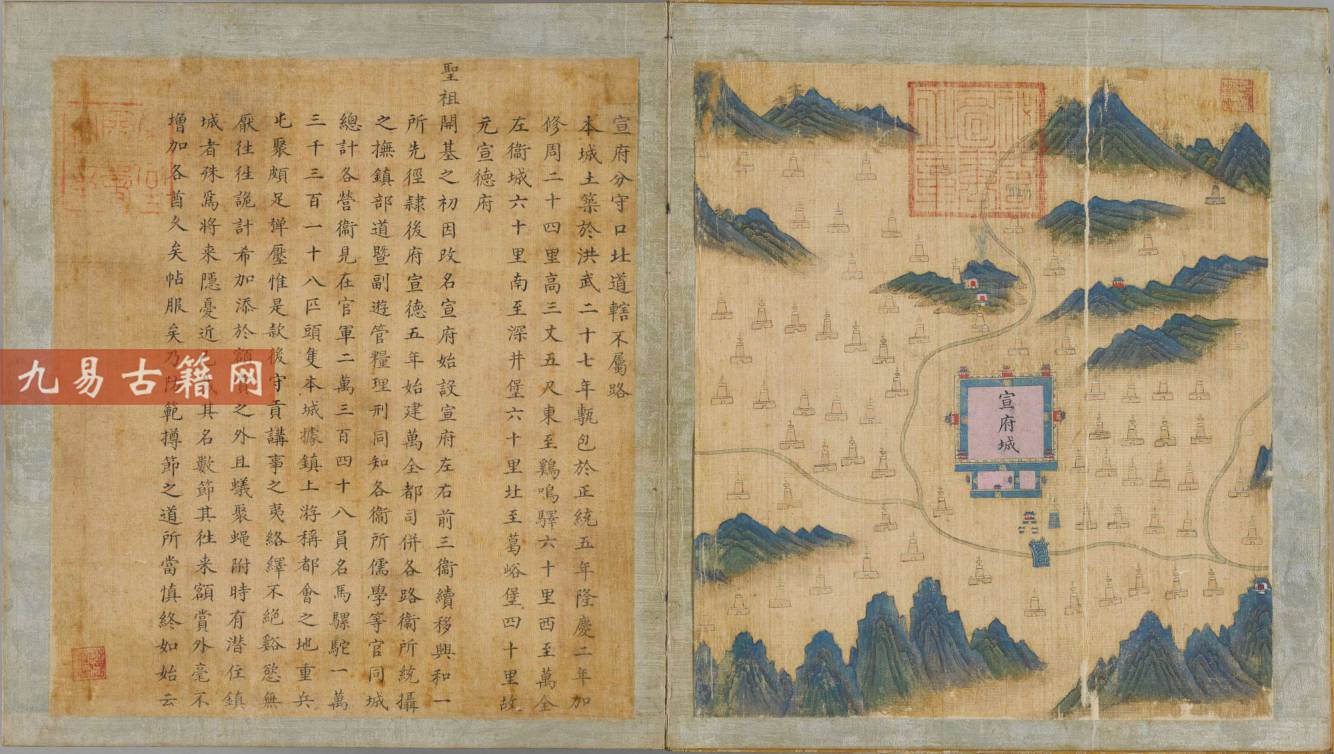 宣府分守口北道轄不屬路
本城土築於洪武二十七年甎包於正統五年隆慶二年加
修周二十四里高三丈五尺東至鷄鳴驛六十里西至萬全
左衞城六十里南至深井堡六十里北至葛峪堡四十里故
元宣德府
聖祖開基之初因改名宣府始設宣府左右前三衞續移興和一
所先徑隸後府宣德五年始建萬全都司併各路衞所統攝
之撫鎮部道暨副遊管糧理刑同知各衞所儒學等官同城
總計各營衞見在官軍二萬三百四十八員名馬騾駝一萬
三千三百一十八匹頭隻本城據鎮上游稱都會之地重兵
屯聚頗足彈壓惟是款後守貢講事之夷絡繹不絕谿慾無
厭往往詭計希加添於額之外且蟻聚蠅附時有潛住鎮
城者殊爲將来隱憂近其名數節其往来額賞外毫不
增加各酋久矣帖服矣乃防範撙節之道所當慎終如始云
九易古籍网
宣府城